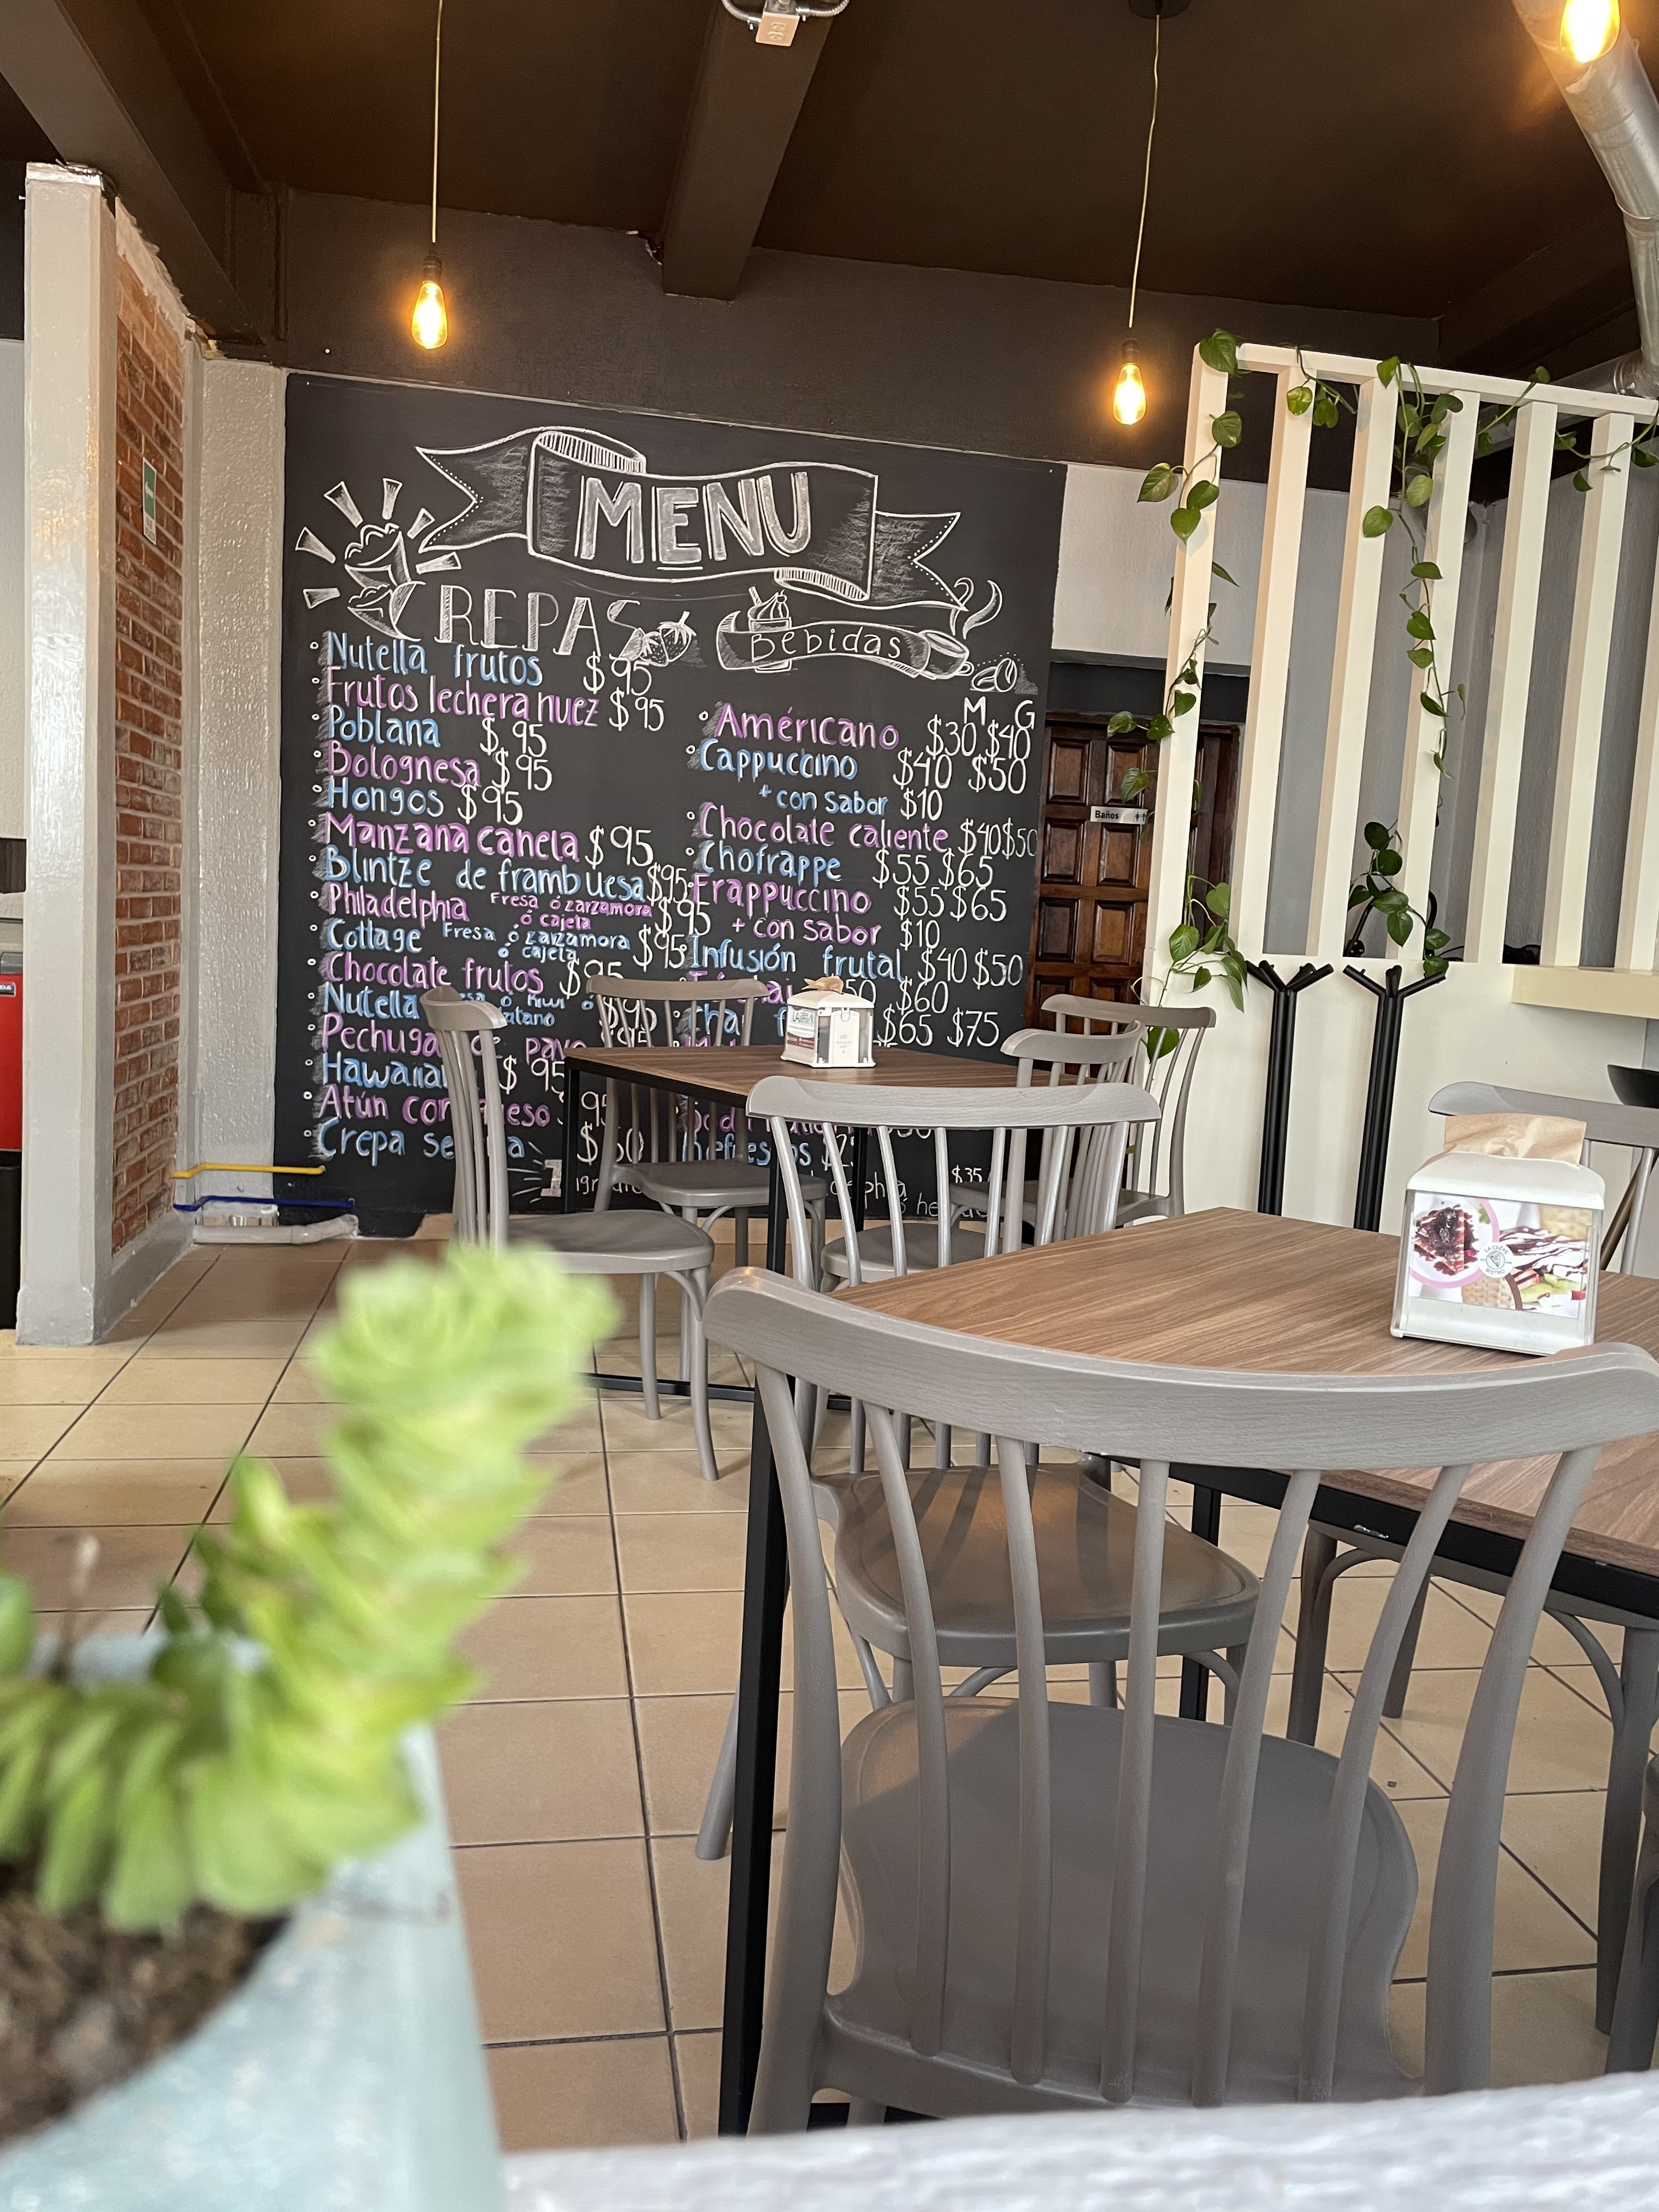 MENU
CREPAS
Nutella frutos $95
Frutos lechera nuez $95
Poblana $95
Bolognesa $95
Hongos $95
Manzana canela $95
Blintze de frambuesa $95
Philadelphia Fresa ó zarzamora $95
ó cajeta
Cottage Fresa ó zarzamora $95
ó cajeta
Chocolate frutos $95
Nutella ó kiwi ó
Pechuga
$95
Atún
Crepa
Bebidas
M G
Américano $30 $40
Cappuccino $40 $50
+ con sabor $10
Chocolate caliente $40 $50
Chofrappe $55 $65
Frappuccino $55 $65
+ con sabor $10
Infusión frutal $40 $50
$60
$65 $75
$35
Baños